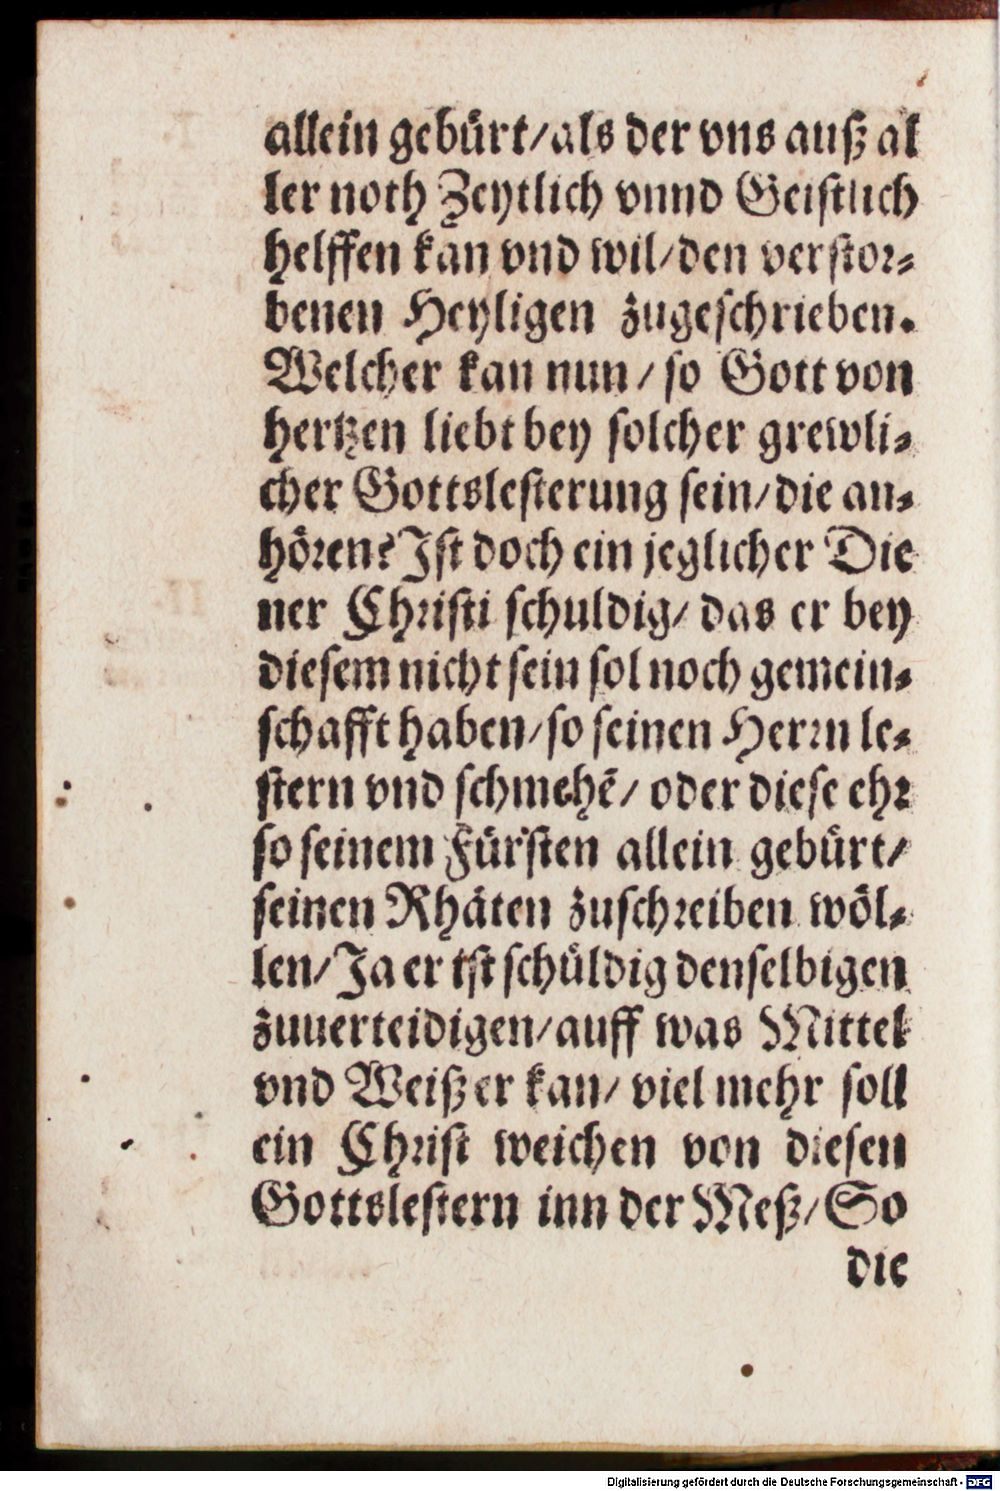 allein gebürt/als der vns auß al
ler noth Zeytlich vnnd Geistlich
helffen kan vnd wil/den verstor-
benen Heyligen zugeschrieben.
Welcher kan nun/ so Gott von
hertzen liebt bey solcher grewli-
cher Gottslesterung sein/die an-
hören? Ist doch ein jeglicher Die
ner Christi schuldig/ das er bey
diesem nicht sein sol noch gemein-
schafft haben/so seinen Herrn le-
stern vnd schmehẽ/ oder diese ehr
so seinem Fürsten allein gebürt/
seinen Rhäten zuschreiben wöl-
len/Ja er ist schüldig denselbigen
zuuerteidigen/auff was Mittel
vnd Weiß er kan/ viel mehr soll
ein Christ weichen von diesen
Gottslestern inn der Meß/So
die
Digitalisierung gefördert durch die Deutsche Forschungsgemeinschaft - DFG